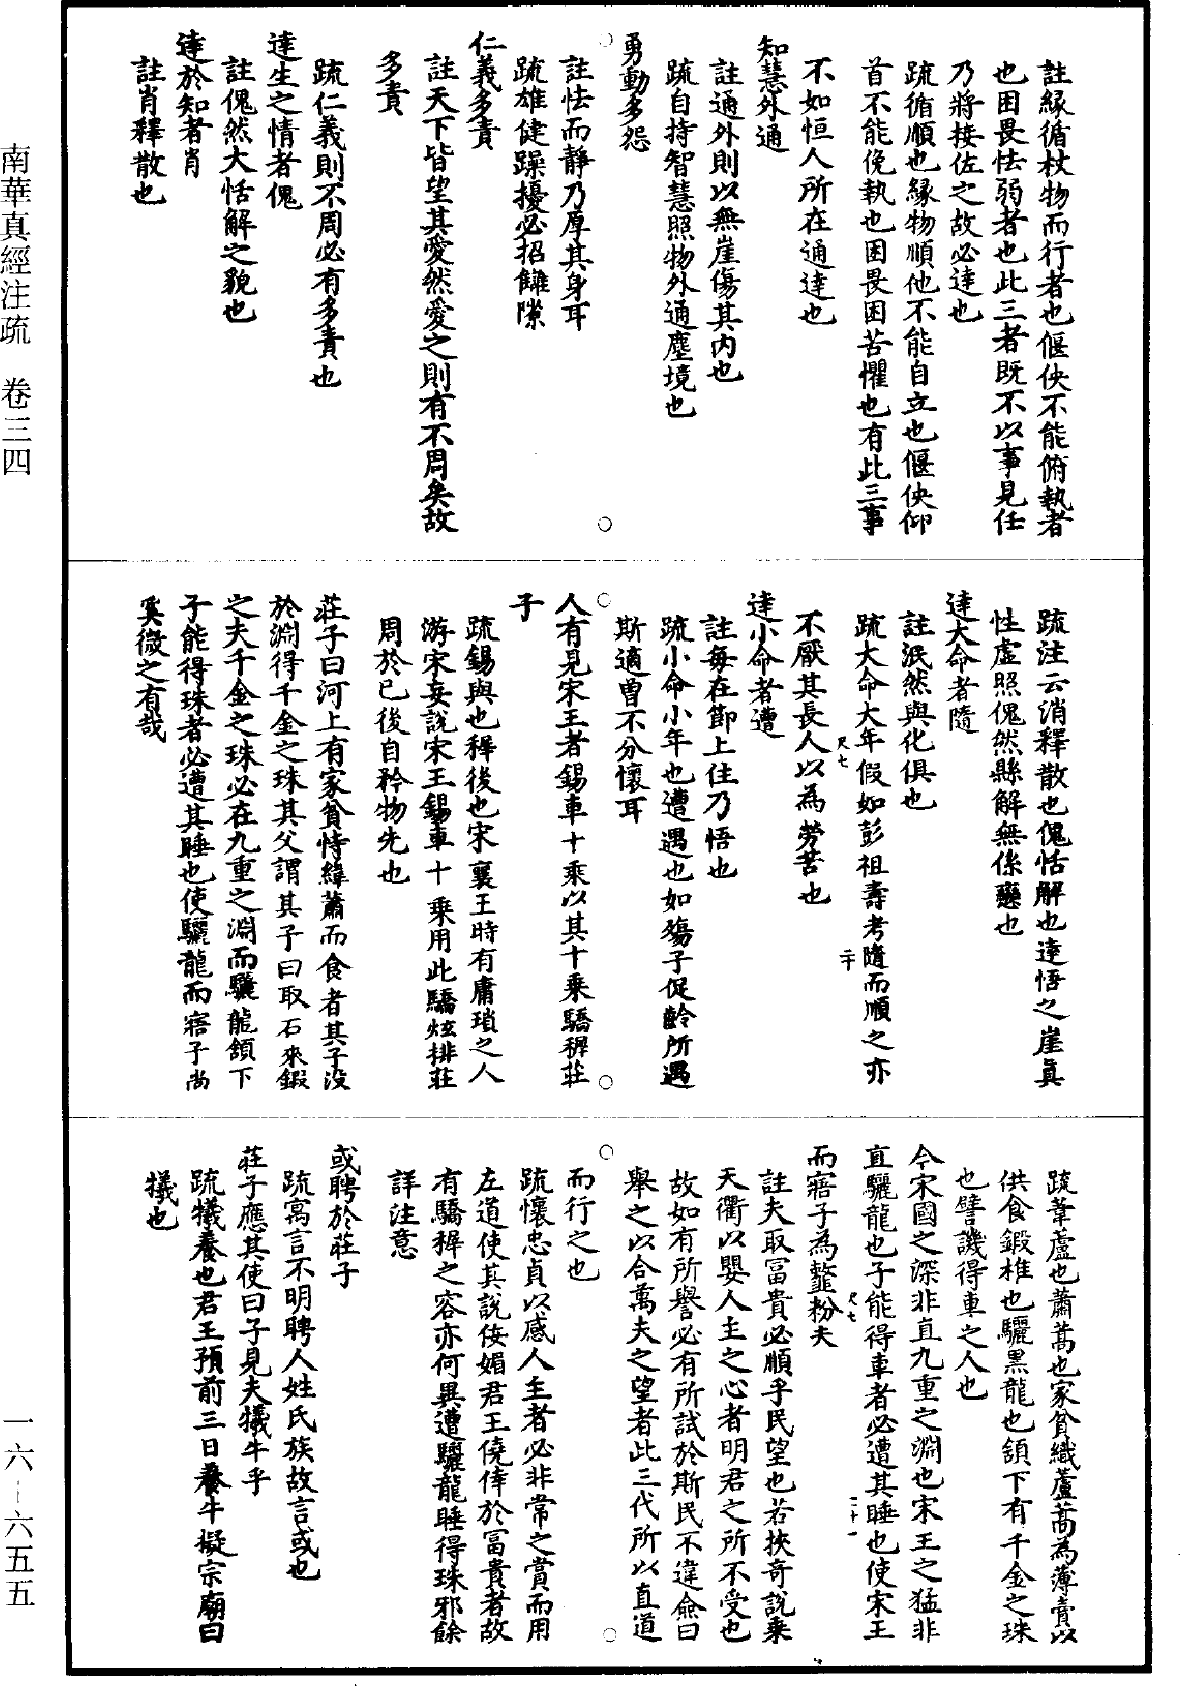 註緣循杖物而行者也偃佒不能俯執者
也困畏怯弱者也此三者既不以事見任
乃將接佐之故必達也
疏循順也緣物順他不能自立也偃佒仰
首不能俛執也困畏困苦懼也有此三事
不如恒人所在通達也
知慧外通
註通外則以無崖傷其内也
疏自持智慧照物外通塵境也
勇動多怨
註怯而靜乃厚其身耳
疏雄健躁擾必招讎隙
仁義多責
註天下皆望其愛然愛之則有不周矣故
多責
疏仁義則不周必有多責也
達生之情者傀
註傀然大恬解之貌也
達於知者肖
註肖釋散也
疏注云消釋散也傀恬解也達悟之崖真
性虛照傀然縣解無係戀也
達大命者隨
註泯然與化俱也
疏大命大年假如彭祖壽考隨而順之亦
不厭其長人以為勞苦也
達小命者遭
註每在節上住乃悟也
疏小命小年也遭遇也如殤子促齡所遇
斯適曾不介懷耳
人有見宋王者錫車十乘以其十乘驕穉莊
子
疏錫與也穉後也宋襄王時有庸瑣之人
游宋妄說宋王錫車十乘用此驕炫排莊
周於已後自矜物先也
莊子曰河上有家貧恃緯蕭而食者其子沒
於淵得千金之珠其父謂其子曰取石來鍛
之夫千金之珠必在九重之淵而驪龍頷下
子能得珠者必遭其睡也使驪龍而寤子尚
奚微之有哉
疏葦蘆也蕭蒿也家貧織蘆蒿為薄賣以
供食鍛椎也驪黑龍也頷下有千金之珠
也譬譏得車之人也
今宋國之深非直九重之淵也宋王之猛非
直驪龍也子能得車者必遭其睡也使宋王
而寤子為韲粉夫
註夫取富貴必順乎民望也若挾奇說乘
天衢以嬰人主之心者明君之所不受也
故如有所譽必有所試於斯民不違僉曰
舉之以合萬夫之望者此三代所以直道
而行之也
疏懷忠貞以感人主者必非常之賞而用
左道使其說佞媚君王僥倖於富貴者故
有驕穉之容亦何異遭驪龍睡得珠邪餘
詳注意
或聘於莊子
疏寓言不明聘人姓氏族故言或也
莊子應其使曰子見夫犧牛乎
疏犧養也君王預前三日養牛擬宗廟曰
犧也
尺七
二十
尺七
二十一
南華真經注疏 卷三四
一六-六五五